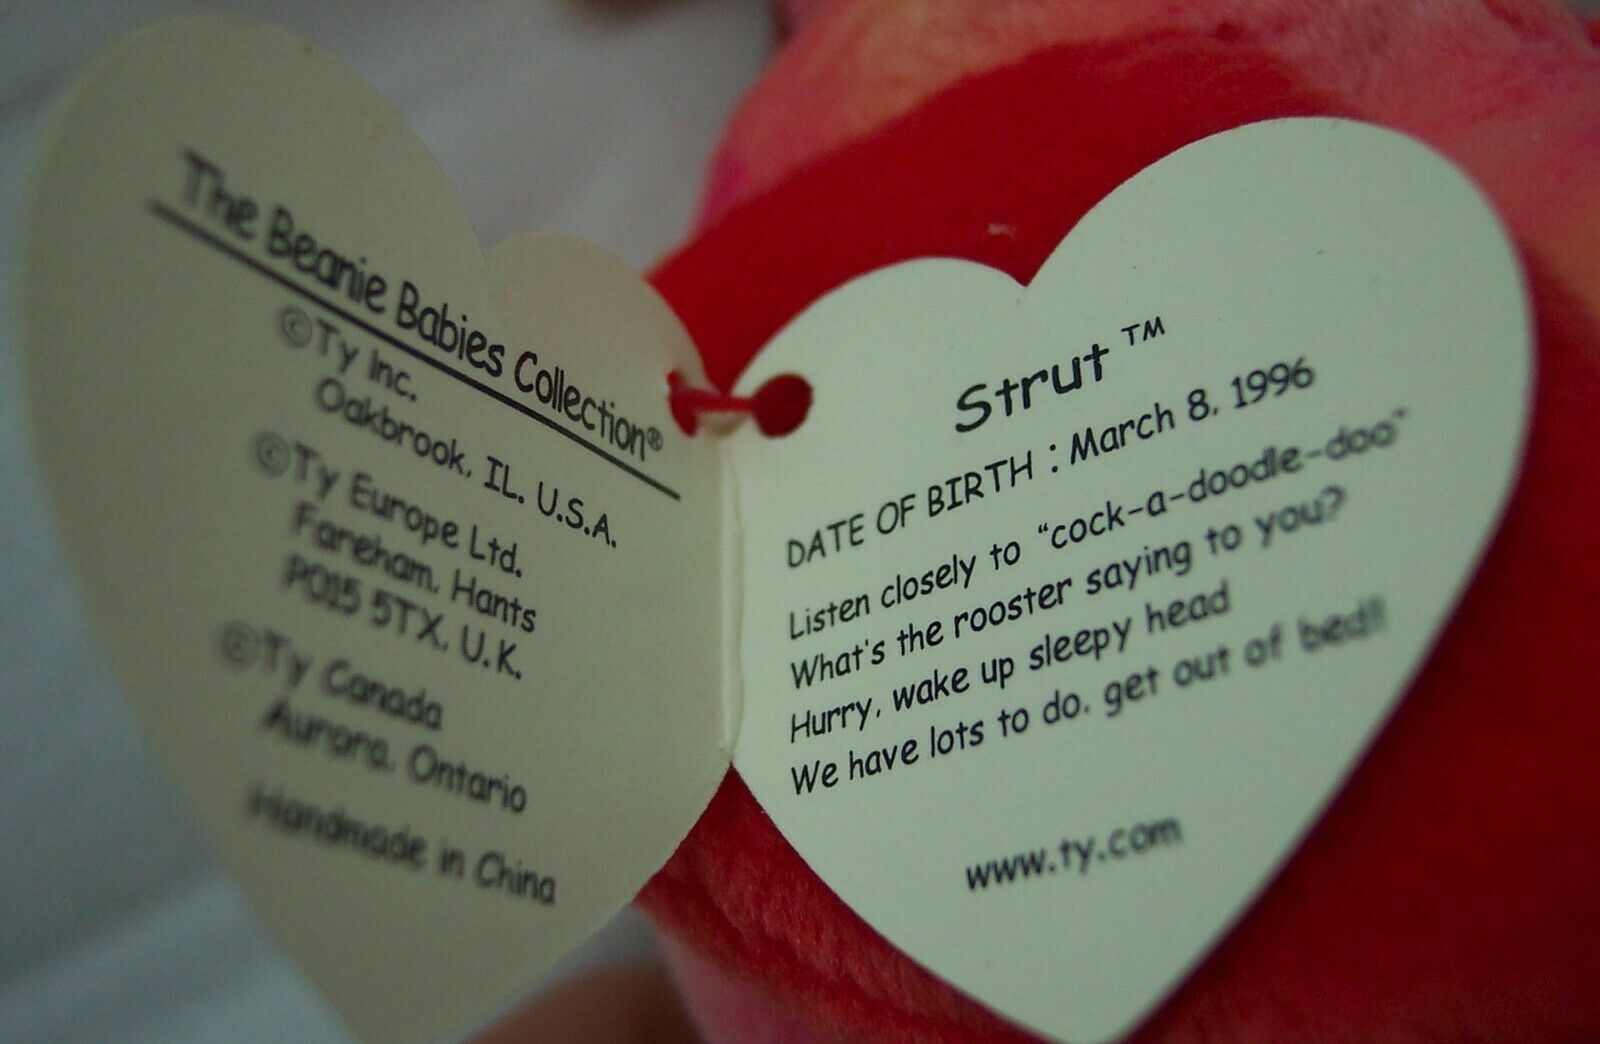 The Beanie Babies Collection®
©Ty Inc.
Oakbrook, IL. U.S.A.
©Ty Europe Ltd.
Fareham, Hants
PO15 5TX, U.K.
©Ty Canada
Aurora, Ontario
Handmade in China
Strut™
DATE OF BIRTH : March 8, 1996
Listen closely to "cock-a-doodle-doo"
What's the rooster saying to you?
Hurry, wake up sleepy head
We have lots to do, get out of bed!!
www.ty.com